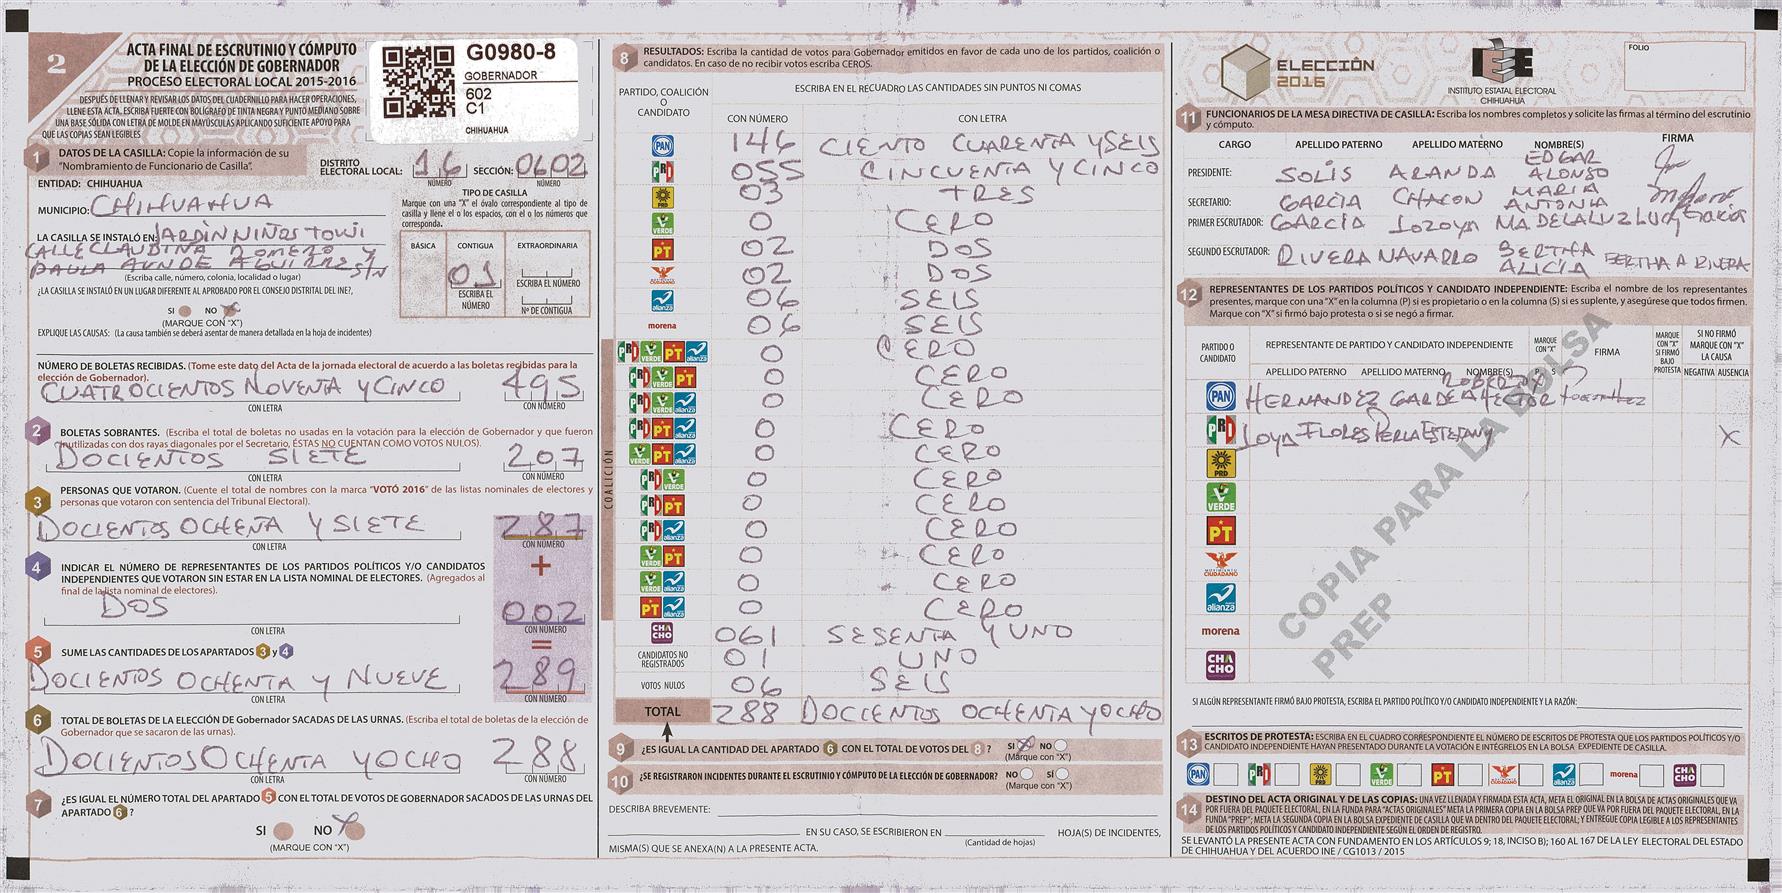 2
ACTA FINAL DE ESCRUTINIO Y CÓMPUTO
DE LA ELECCIÓN DE GOBERNADOR
PROCESO ELECTORAL LOCAL 2015-2016
DESPUÉS DE LLENAR Y REVISAR LOS DATOS DEL CUADERNILLO PARA HACER OPERACIONES,
LLENE ESTA ACTA. ESCRIBA FUERTE CON BOLÍGRAFO DE TINTA NEGRA Y PUNTO MEDIANO SOBRE
UNA BASE SÓLIDA CON LETRA DE MOLDE EN MAYÚSCULAS APLICANDO SUFICIENTE APOYO PARA
QUE LAS COPIAS SEAN LEGIBLES
G0980-8
GOBERNADOR
602
C1
CHIHUAHUA
1 DATOS DE LA CASILLA: Copie la información de su
"Nombramiento de Funcionario de Casilla".
DISTRITO ELECTORAL LOCAL: 16 SECCIÓN: 0602
NÚMERO NÚMERO
ENTIDAD: CHIHUAHUA
MUNICIPIO: CHIHUAHUA
LA CASILLA SE INSTALÓ EN: JARDIN NIÑOS TOWI
CALLE CLAUDINA ROMERO Y
PAULA AUNDE AGUIRRE S/N
(Escriba calle, número, colonia, localidad o lugar)
TIPO DE CASILLA
Marque con una "X" el óvalo correspondiente al tipo de
casilla y llene el o los espacios, con el o los números que
corresponda.
BÁSICA CONTIGUA EXTRAORDINARIA
01
ESCRIBA EL NÚMERO ESCRIBA EL NÚMERO
Nº DE CONTIGUA
¿LA CASILLA SE INSTALÓ EN UN LUGAR DIFERENTE AL APROBADO POR EL CONSEJO DISTRITAL DEL INE?,
SI NO X
(MARQUE CON "X")
EXPLIQUE LAS CAUSAS: (La causa también se deberá asentar de manera detallada en la hoja de incidentes)
NÚMERO DE BOLETAS RECIBIDAS. (Tome este dato del Acta de la jornada electoral de acuerdo a las boletas recibidas para la
elección de Gobernador).
CUATROCIENTOS NOVENTA Y CINCO 495
CON LETRA CON NÚMERO
2 BOLETAS SOBRANTES. (Escriba el total de boletas no usadas en la votación para la elección de Gobernador y que fueron
inutilizadas con dos rayas diagonales por el Secretario, ÉSTAS NO CUENTAN COMO VOTOS NULOS).
DOCIENTOS SIETE 207
CON LETRA CON NÚMERO
3 PERSONAS QUE VOTARON. (Cuente el total de nombres con la marca "VOTÓ 2016" de las listas nominales de electores y
personas que votaron con sentencia del Tribunal Electoral).
DOCIENTOS OCHENA Y SIETE 287
CON LETRA CON NÚMERO
+
4 INDICAR EL NÚMERO DE REPRESENTANTES DE LOS PARTIDOS POLÍTICOS Y/O CANDIDATOS
INDEPENDIENTES QUE VOTARON SIN ESTAR EN LA LISTA NOMINAL DE ELECTORES. (Agregados al
final de la lista nominal de electores).
DOS 002
CON LETRA CON NÚMERO
=
5 SUME LAS CANTIDADES DE LOS APARTADOS 3 y 4
DOCIENTOS OCHENTA Y NUEVE 289
CON LETRA CON NÚMERO
6 TOTAL DE BOLETAS DE LA ELECCIÓN DE Gobernador SACADAS DE LAS URNAS. (Escriba el total de boletas de la elección de
Gobernador que se sacaron de las urnas).
DOCIENTOS OCHENTA Y OCHO 288
CON LETRA CON NÚMERO
7 ¿ES IGUAL EL NÚMERO TOTAL DEL APARTADO 5 CON EL TOTAL DE VOTOS DE GOBERNADOR SACADOS DE LAS URNAS DEL
APARTADO 6 ?
SI NO X
(MARQUE CON "X")
8 RESULTADOS: Escriba la cantidad de votos para Gobernador emitidos en favor de cada uno de los partidos, coalición o
candidatos. En caso de no recibir votos escriba CEROS.
PARTIDO, COALICIÓN O CANDIDATO
ESCRIBA EN EL RECUADRO LAS CANTIDADES SIN PUNTOS NI COMAS
CON NÚMERO CON LETRA
PAN 146 CIENTO CUARENTA Y SEIS
PRD 055 CINCUENTA Y CINCO
PRD 03 TRES
VERDE 0 CERO
PT 02 DOS
02 DOS
alianza 06 SEIS
morena 06 SEIS
COALICIÓN
PRD VERDE PT alianza 0 CERO
PRD VERDE PT 0 CERO
PRD VERDE alianza 0 CERO
PRD PT alianza 0 CERO
VERDE PT alianza 0 CERO
PRD VERDE 0 CERO
PRD PT 0 CERO
PRD alianza 0 CERO
VERDE PT 0 CERO
VERDE alianza 0 CERO
PT alianza 0 CERO
CHACHO 061 SESENTA Y UNO
CANDIDATOS NO REGISTRADOS 01 UNO
VOTOS NULOS 06 SEIS
TOTAL 288 DOCIENTOS OCHENTA Y OCHO
9 ¿ES IGUAL LA CANTIDAD DEL APARTADO 6 CON EL TOTAL DE VOTOS DEL 8 ? SI X NO
(Marque con "X")
10 ¿SE REGISTRARON INCIDENTES DURANTE EL ESCRUTINIO Y CÓMPUTO DE LA ELECCIÓN DE GOBERNADOR? NO SÍ
(Marque con "X")
DESCRIBA BREVEMENTE:
EN SU CASO, SE ESCRIBIERON EN HOJA(S) DE INCIDENTES,
(Cantidad de hojas)
MISMA(S) QUE SE ANEXA(N) A LA PRESENTE ACTA.
ELECCIÓN
2016
IEE
INSTITUTO ESTATAL ELECTORAL
CHIHUAHUA
FOLIO
11 FUNCIONARIOS DE LA MESA DIRECTIVA DE CASILLA: Escriba los nombres completos y solicite las firmas al término del escrutinio
y cómputo.
CARGO APELLIDO PATERNO APELLIDO MATERNO NOMBRE(S) FIRMA
PRESIDENTE: SOLIS ARANDA EDGAR ALONSO
SECRETARIO: GARCIA CHACON MARIA ANTONIA
PRIMER ESCRUTADOR: GARCIA LOZOYA MA DE LA LUZ
SEGUNDO ESCRUTADOR: RIVERA NAVARRO BERTHA ALICIA BERTHA A RIVERA
12 REPRESENTANTES DE LOS PARTIDOS POLÍTICOS Y CANDIDATO INDEPENDIENTE: Escriba el nombre de los representantes
presentes, marque con una "X" en la columna (P) si es propietario o en la columna (S) si es suplente, y asegúrese que todos firmen.
Marque con "X" si firmó bajo protesta o si se negó a firmar.
PARTIDO O CANDIDATO
REPRESENTANTE DE PARTIDO Y CANDIDATO INDEPENDIENTE
APELLIDO PATERNO APELLIDO MATERNO NOMBRE(S)
MARQUE CON "X" P S
FIRMA
MARQUE CON "X" SI FIRMÓ BAJO PROTESTA
SI NO FIRMÓ MARQUE CON "X" LA CAUSA
NEGATIVA AUSENCIA
PAN HERNANDEZ GARDEA ROBERTO HECTOR X
PRD LOYA FLORES PERLA ESTEFANY X
PRD
VERDE
PT
MOVIMIENTO CIUDADANO
alianza
morena
CHACHO
COPIA PARA LA BOLSA
PREP
SI ALGÚN REPRESENTANTE FIRMÓ BAJO PROTESTA, ESCRIBA EL PARTIDO POLÍTICO Y/O CANDIDATO INDEPENDIENTE Y LA RAZÓN:
13 ESCRITOS DE PROTESTA: ESCRIBA EN EL CUADRO CORRESPONDIENTE EL NÚMERO DE ESCRITOS DE PROTESTA QUE LOS PARTIDOS POLÍTICOS Y/O
CANDIDATO INDEPENDIENTE HAYAN PRESENTADO DURANTE LA VOTACIÓN E INTÉGRELOS EN LA BOLSA EXPEDIENTE DE CASILLA.
PAN PRD PRD VERDE PT alianza morena CHACHO
14 DESTINO DEL ACTA ORIGINAL Y DE LAS COPIAS: UNA VEZ LLENADA Y FIRMADA ESTA ACTA, META EL ORIGINAL EN LA BOLSA DE ACTAS ORIGINALES QUE VA
POR FUERA DEL PAQUETE ELECTORAL, EN LA FUNDA PARA "ACTAS ORIGINALES" META LA PRIMERA COPIA EN LA BOLSA PREP QUE VA POR FUERA DEL PAQUETE ELECTORAL, EN LA
FUNDA "PREP"; META LA SEGUNDA COPIA EN LA BOLSA EXPEDIENTE DE CASILLA QUE VA DENTRO DEL PAQUETE ELECTORAL; Y ENTREGUE COPIA LEGIBLE A LOS REPRESENTANTES
DE LOS PARTIDOS POLÍTICOS Y CANDIDATO INDEPENDIENTE SEGÚN EL ORDEN DE REGISTRO.
SE LEVANTÓ LA PRESENTE ACTA CON FUNDAMENTO EN LOS ARTÍCULOS 9; 18, INCISO B); 160 AL 167 DE LA LEY ELECTORAL DEL ESTADO
DE CHIHUAHUA Y DEL ACUERDO INE / CG1013 / 2015